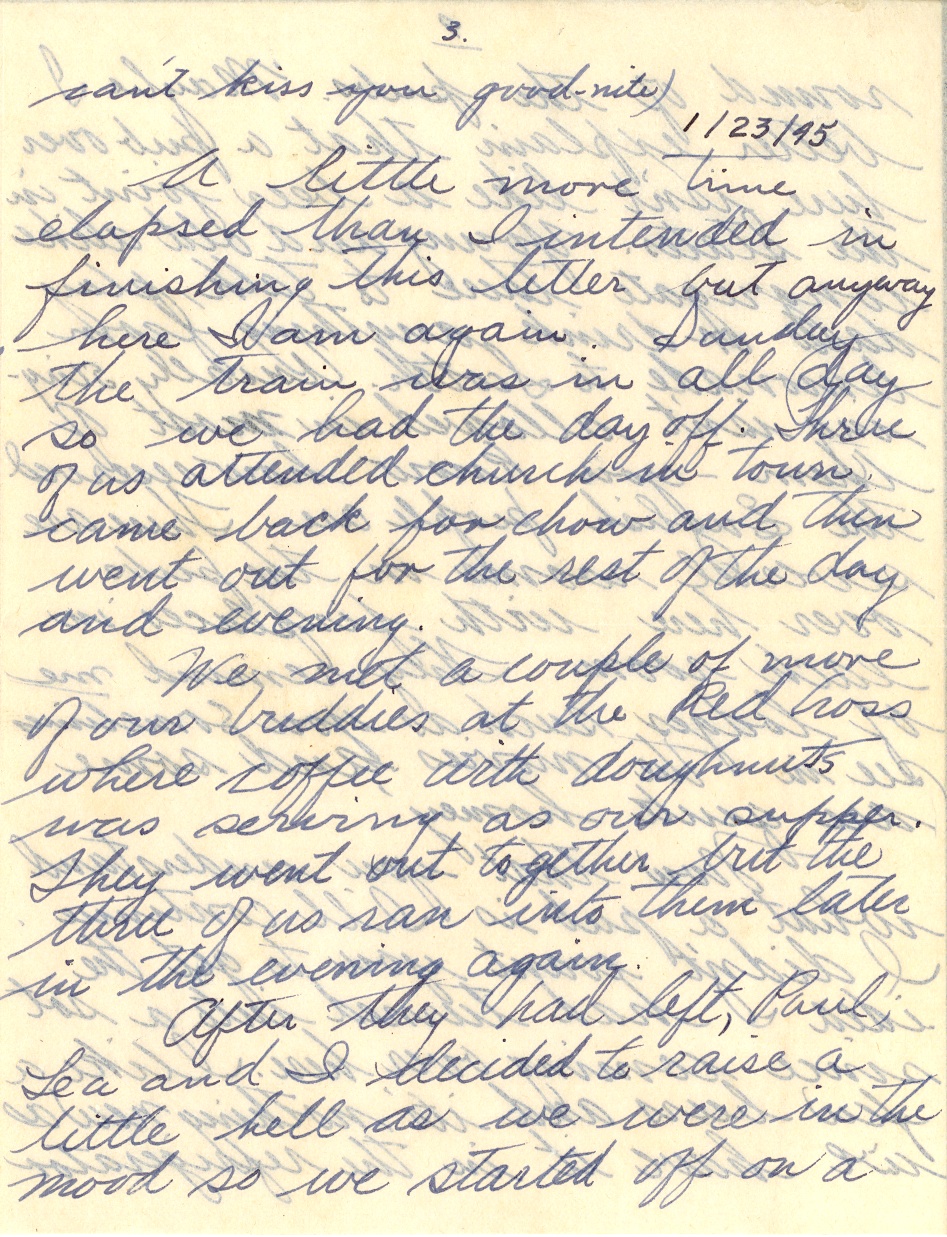 3.
can't kiss you good-nite)
1/23/45
A little more time
elapsed than I intended in
finishing this letter but anyway
here I am again. Sunday
the train was in all day
so we had the day off. Three
of us attended church in town
came back for chow and then
went out for the rest of the day
and evening.
We met a couple of more
of our buddies at the Red Cross
where coffee with doughnuts
was serving as our supper.
They went out together but the
three of us ran into them later
in the evening again.
After they had left, Paul,
Lea and I decided to raise a
little hell as we were in the
mood so we started off on a